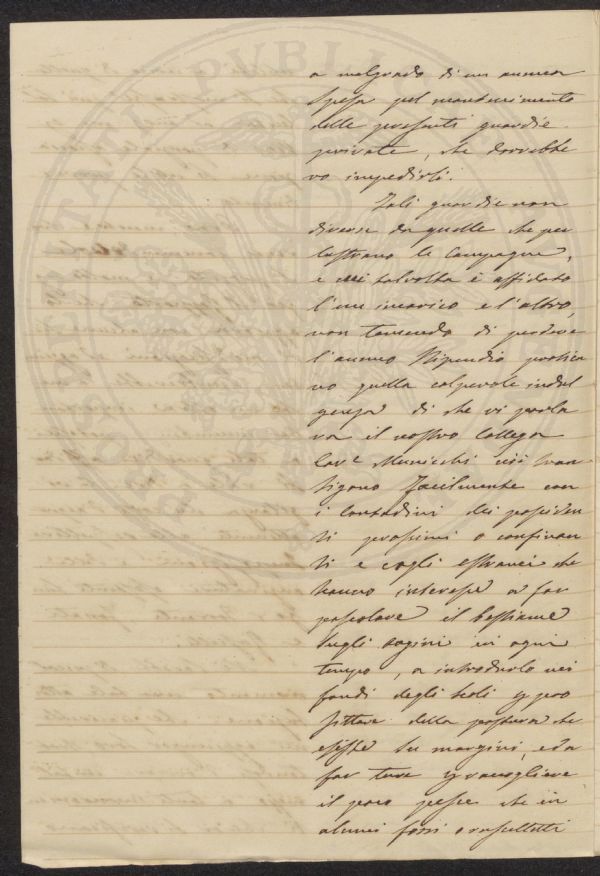 a malgrado di un annua
spesa pel mantenimento
delle presenti guardie
private, che dovrebbe
ro impedirli.
Tali guardie non
diverse da quelle che per
lustrano le Campagne,
e talvolta è affidato
l'un incarico e l'altro,
non temendo di perdere
l'annuo stipendio pratica
no quella colpevole indul
genza di che vi parla
va il nostro Collega
Cav.e Municchi
sigono facilmente con
i contadini dei possiden
ti prossimi o confinan
ti e cogli estranei che
hanno interesse a far
pascolare il bestiame
sugli argini in ogni
tempo, a introdurlo nei
fondi degli scoli
fittare della pastura che
esiste su margini, e da
far ture
il poco pesce che in
alcuni fossi